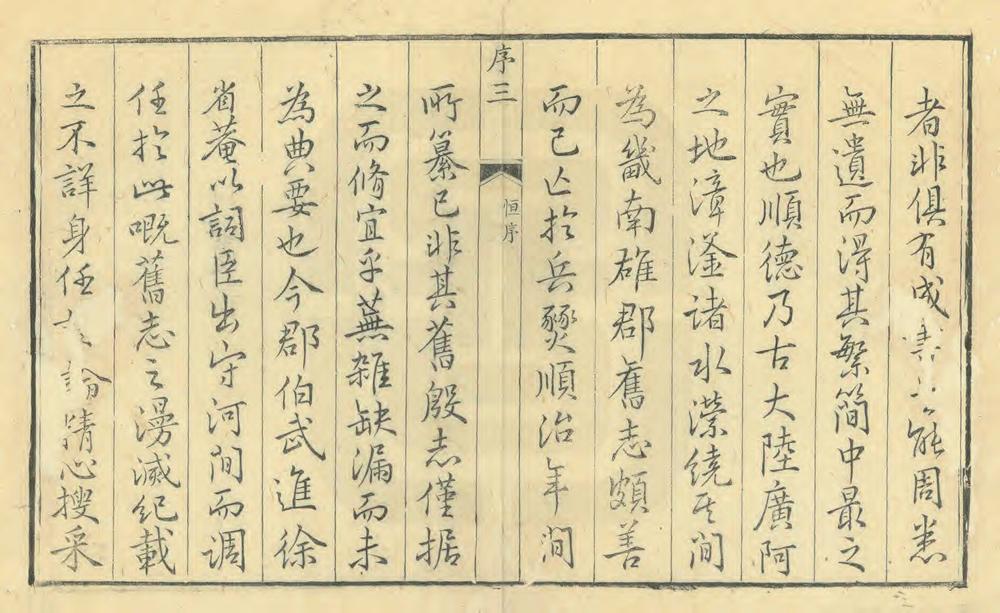 者非俱有成書不能周悉
無遺而淂其繁簡中最之
實也順德乃古大陸廣阿
之地漳滏诸水濚繞其间
為畿南雄郡舊志頗善
而已亡扵兵燹順治年间
序三
恒序
所纂已非其舊殷志僅据
之而脩宜乎蕪雑缺漏而未
為典要也今郡伯武進徐
省菴以詞臣出守河间而调
任扵此嘅舊志之漫滅纪載
之不詳身任精心搜采